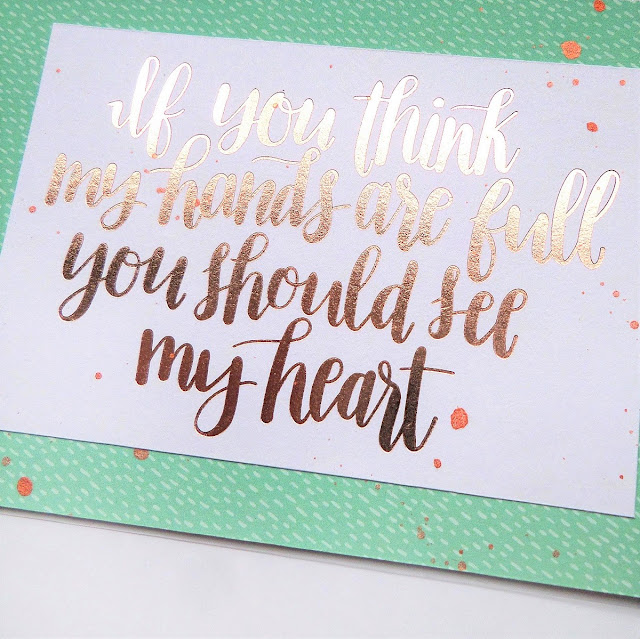 If you think
my hands are full
you should see
my heart